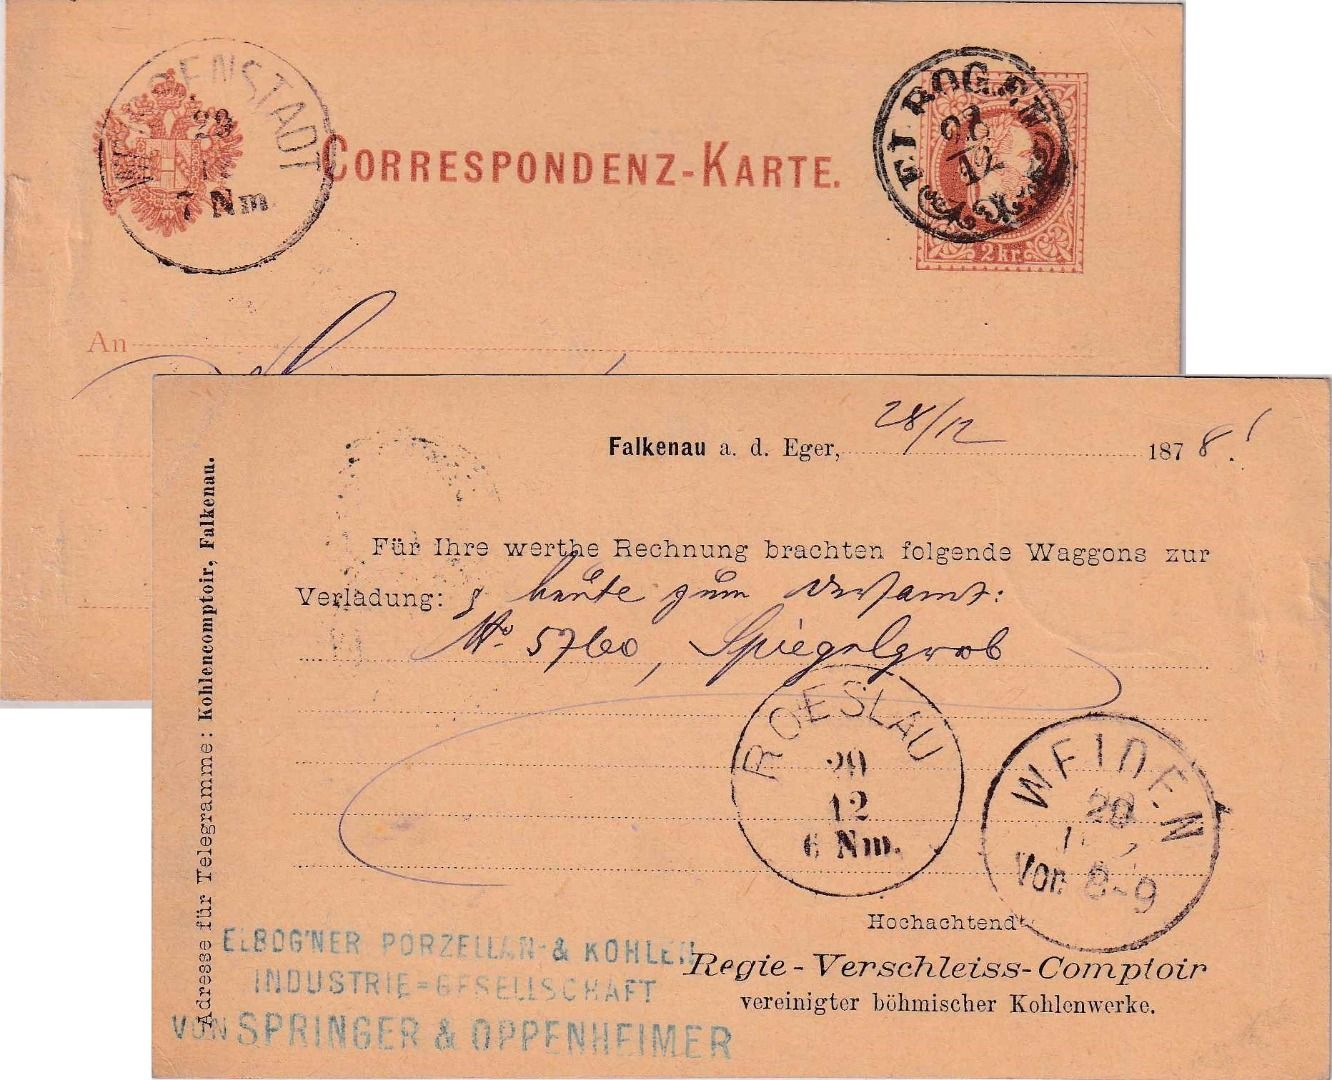 ENSTADT
29
7 Nm.
CORRESPONDENZ-KARTE.
ELBOGEN
28
12
2 kr.
An
Falkenau a. d. Eger, 28/12 1878!
Für Ihre werthe Rechnung brachten folgende Waggons zur
Verladung: heute zum
No. 5760, Spiegelgrob
ROESLAU
29
12
6 Nm.
WEIDEN
Vor 8-9
Hochachtend
Regie-Verschleiss-Comptoir
vereinigter böhmischer Kohlenwerke.
Adresse für Telegramme: Kohlencomptoir, Falkenau.
ELBOG'NER PORZELLAN- & KOHLEN
INDUSTRIE=GESELLSCHAFT
VON SPRINGER & OPPENHEIMER